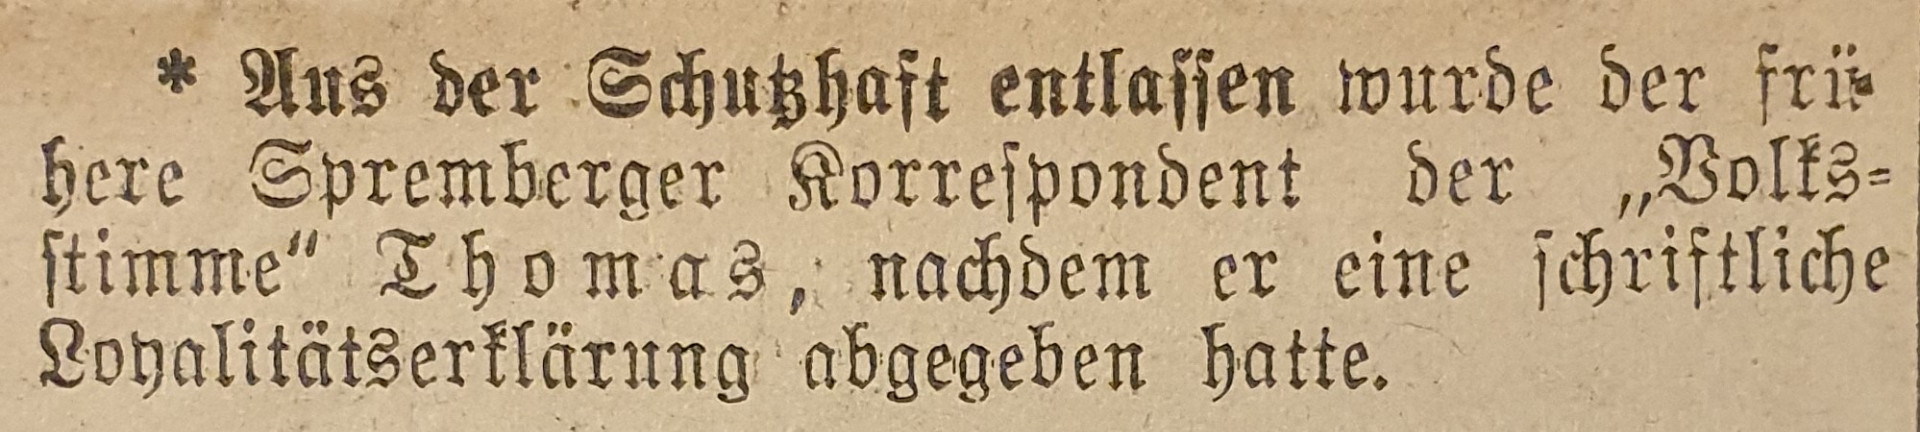 * Aus der Schutzhaft entlassen wurde der frü-
here Spremberger Korrespondent der „Volks-
stimme“ Thomas, nachdem er eine schriftliche
Loyalitätserklärung abgegeben hatte.